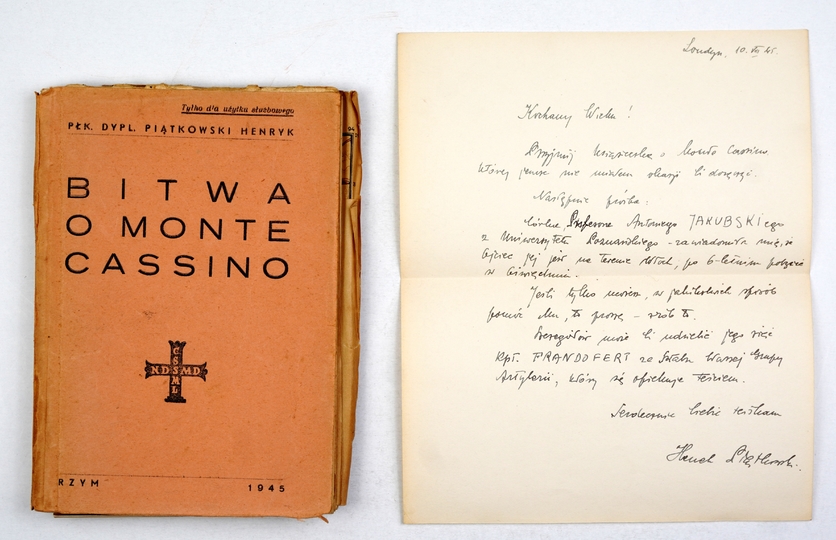 Tylko dla użytku służbowego
PŁK. DYPL. PIĄTKOWSKI HENRYK
BITWA
O MONTE
CASSINO
C
S
NDSMD
M
L
RZYM 1945
Londyn, 10. VII 45.
Kochany Wicku!
Przyjmij książeczkę o Monte Cassino
której jeszcze nie miałem okazji Ci doręczyć.
Następnie prośba:
Córka Profesora Antoniego JAKUBSKIego
z Uniwersytetu Poznańskiego - zawiadomiła mnie, że
Ojciec jej jest na terenie Włoch, po 6-letnim pobycie
w Oświęcimiu.
Jeśli tylko możesz, w jakikolwiek sposób
pomóc Mu, to proszę - zrób to.
Szczegółów może Ci udzielić jego zięć
Kpt. PRANDOFERT ze Sztabu Waszej Grupy
Artylerii, który się opiekuje teściem.
Serdecznie Ciebie ściskam
Henryk Piątkowski.